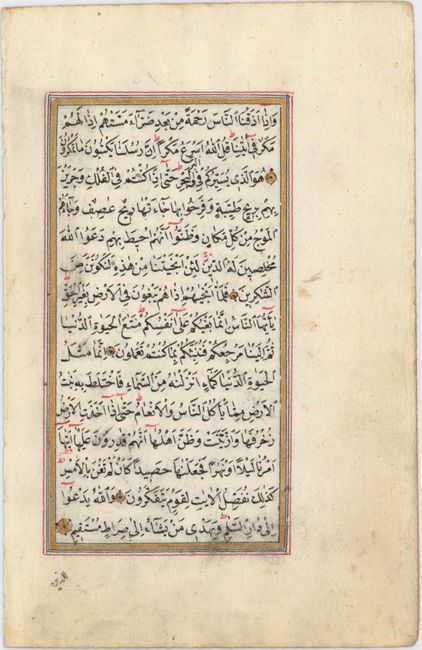 وَإِذَا أَذَقْنَا النَّاسَ رَحْمَةً مِنْ بَعْدِ ضَرَّاءَ مَسَّتْهُمْ إِذَا لَهُمْ
مَكْرٌ فِي آيَاتِنَا قُلِ اللَّهُ أَسْرَعُ مَكْرًا إِنَّ رُسُلَنَا يَكْتُبُونَ مَا تَمْكُرُونَ
هُوَ الَّذِي يُسَيِّرُكُمْ فِي الْبَرِّ وَالْبَحْرِ حَتَّى إِذَا كُنْتُمْ فِي الْفُلْكِ وَجَرَيْنَ
بِهِمْ بِرِيحٍ طَيِّبَةٍ وَفَرِحُوا بِهَا جَاءَتْهَا رِيحٌ عَاصِفٌ وَجَاءَهُمُ
الْمَوْجُ مِنْ كُلِّ مَكَانٍ وَظَنُّوا أَنَّهُمْ أُحِيطَ بِهِمْ دَعَوُا اللَّهَ
مُخْلِصِينَ لَهُ الدِّينَ لَئِنْ أَنْجَيْتَنَا مِنْ هَذِهِ لَنَكُونَنَّ مِنَ
الشَّاكِرِينَ فَلَمَّا أَنْجَاهُمْ إِذَا هُمْ يَبْغُونَ فِي الْأَرْضِ بِغَيْرِ الْحَقِّ
يَا أَيُّهَا النَّاسُ إِنَّمَا بَغْيُكُمْ عَلَى أَنْفُسِكُمْ مَتَاعَ الْحَيَوةِ الدُّنْيَا
ثُمَّ إِلَيْنَا مَرْجِعُكُمْ فَنُنَبِّئُكُمْ بِمَا كُنْتُمْ تَعْمَلُونَ إِنَّمَا مَثَلُ
الْحَيَوةِ الدُّنْيَا كَمَاءٍ أَنْزَلْنَاهُ مِنَ السَّمَاءِ فَاخْتَلَطَ بِهِ نَبَاتُ
الْأَرْضِ مِمَّا يَأْكُلُ النَّاسُ وَالْأَنْعَامُ حَتَّى إِذَا أَخَذَتِ الْأَرْضُ
زُخْرُفَهَا وَازَّيَّنَتْ وَظَنَّ أَهْلُهَا أَنَّهُمْ قَادِرُونَ عَلَيْهَا أَتَاهَا
أَمْرُنَا لَيْلًا أَوْ نَهَارًا فَجَعَلْنَاهَا حَصِيدًا كَأَنْ لَمْ تَغْنَ بِالْأَمْسِ
كَذَلِكَ نُفَصِّلُ الْآيَاتِ لِقَوْمٍ يَتَفَكَّرُونَ وَاللَّهُ يَدْعُوا
إِلَى دَارِ السَّلَامِ وَيَهْدِي مَنْ يَشَاءُ إِلَى صِرَاطٍ مُسْتَقِيمٍ
للذين